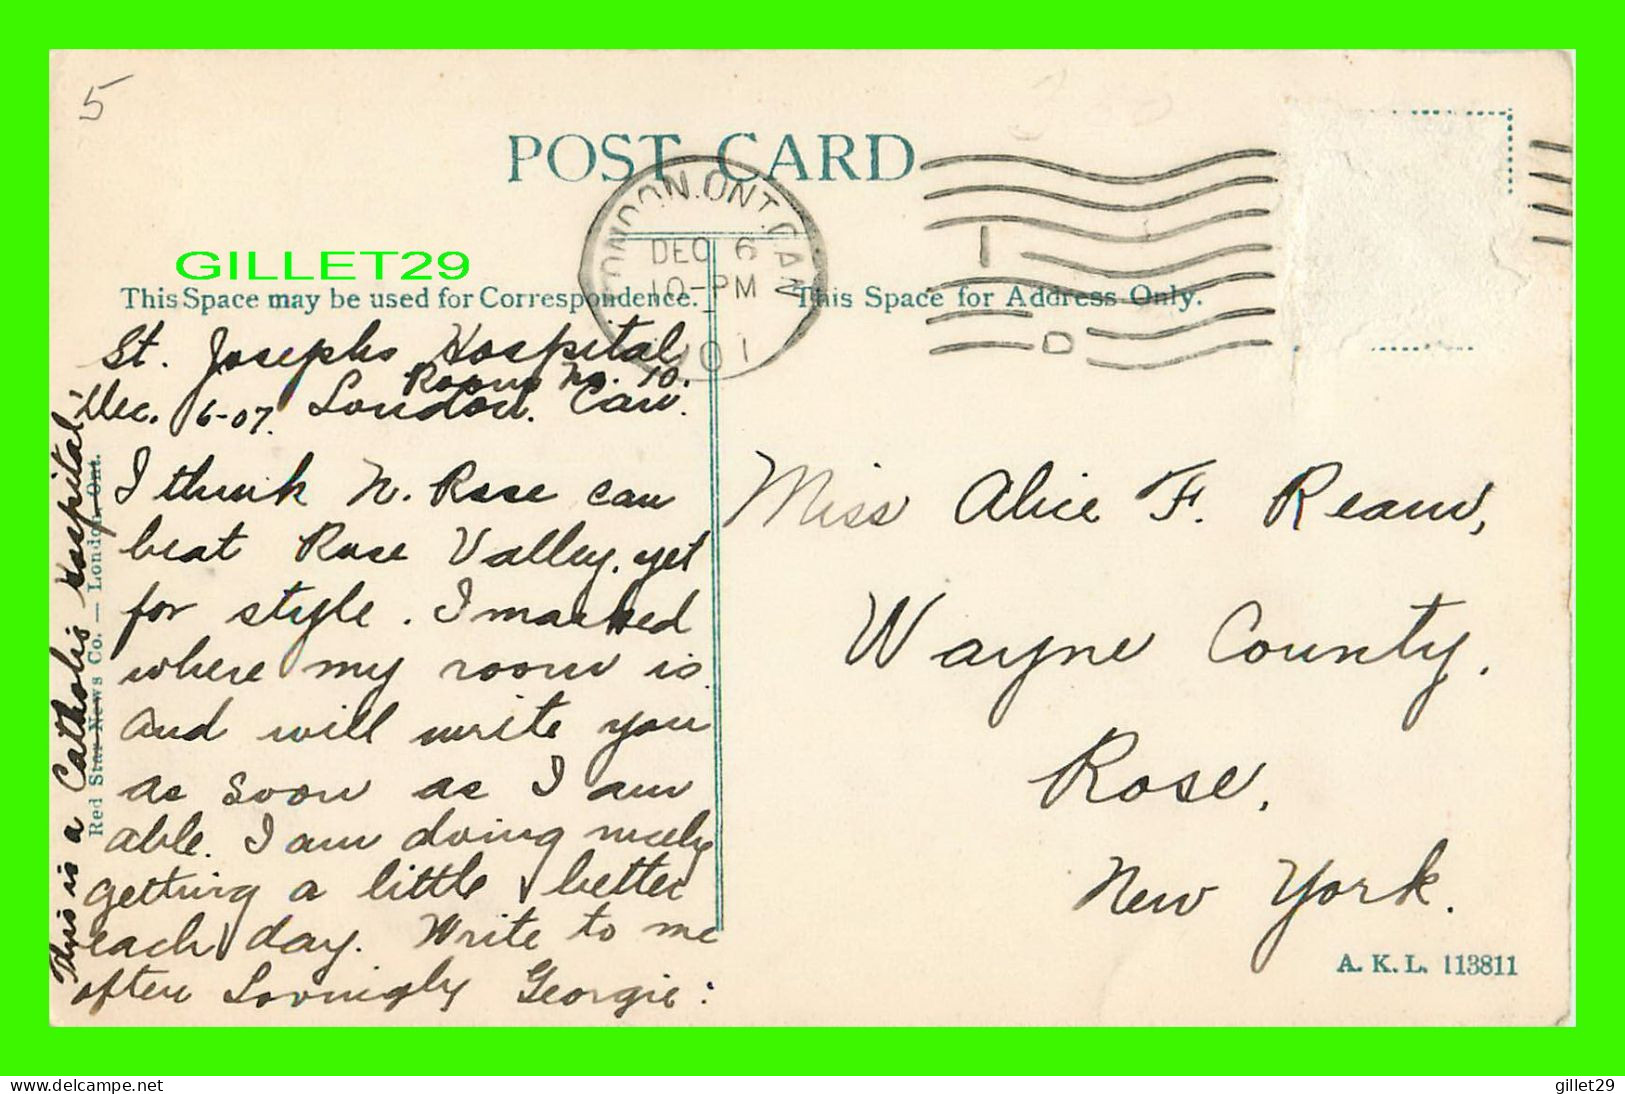 5
POST CARD
LONDON.ONT.CAN
DEC 6
10-PM
GILLET29
This Space may be used for Correspondence.
This Space for Address Only.
St. Josephs Hospital
Room No. 10.
Dec. 6-07. London. Can.
I think N. Rose can
beat Rose Valley. yet
for style. I marked
where my room is.
and will write you
as soon as I am
able. I am doing nicely
getting a little better
each day. Write to me
often Lovingly Georgie:
This is a Catholic Hospital.
Red Star News Co. — London, Ont.
Miss Alice F.
Wayne County.
Rose.
New York.
A. K. L. 113811
www.delcampe.net
gillet29